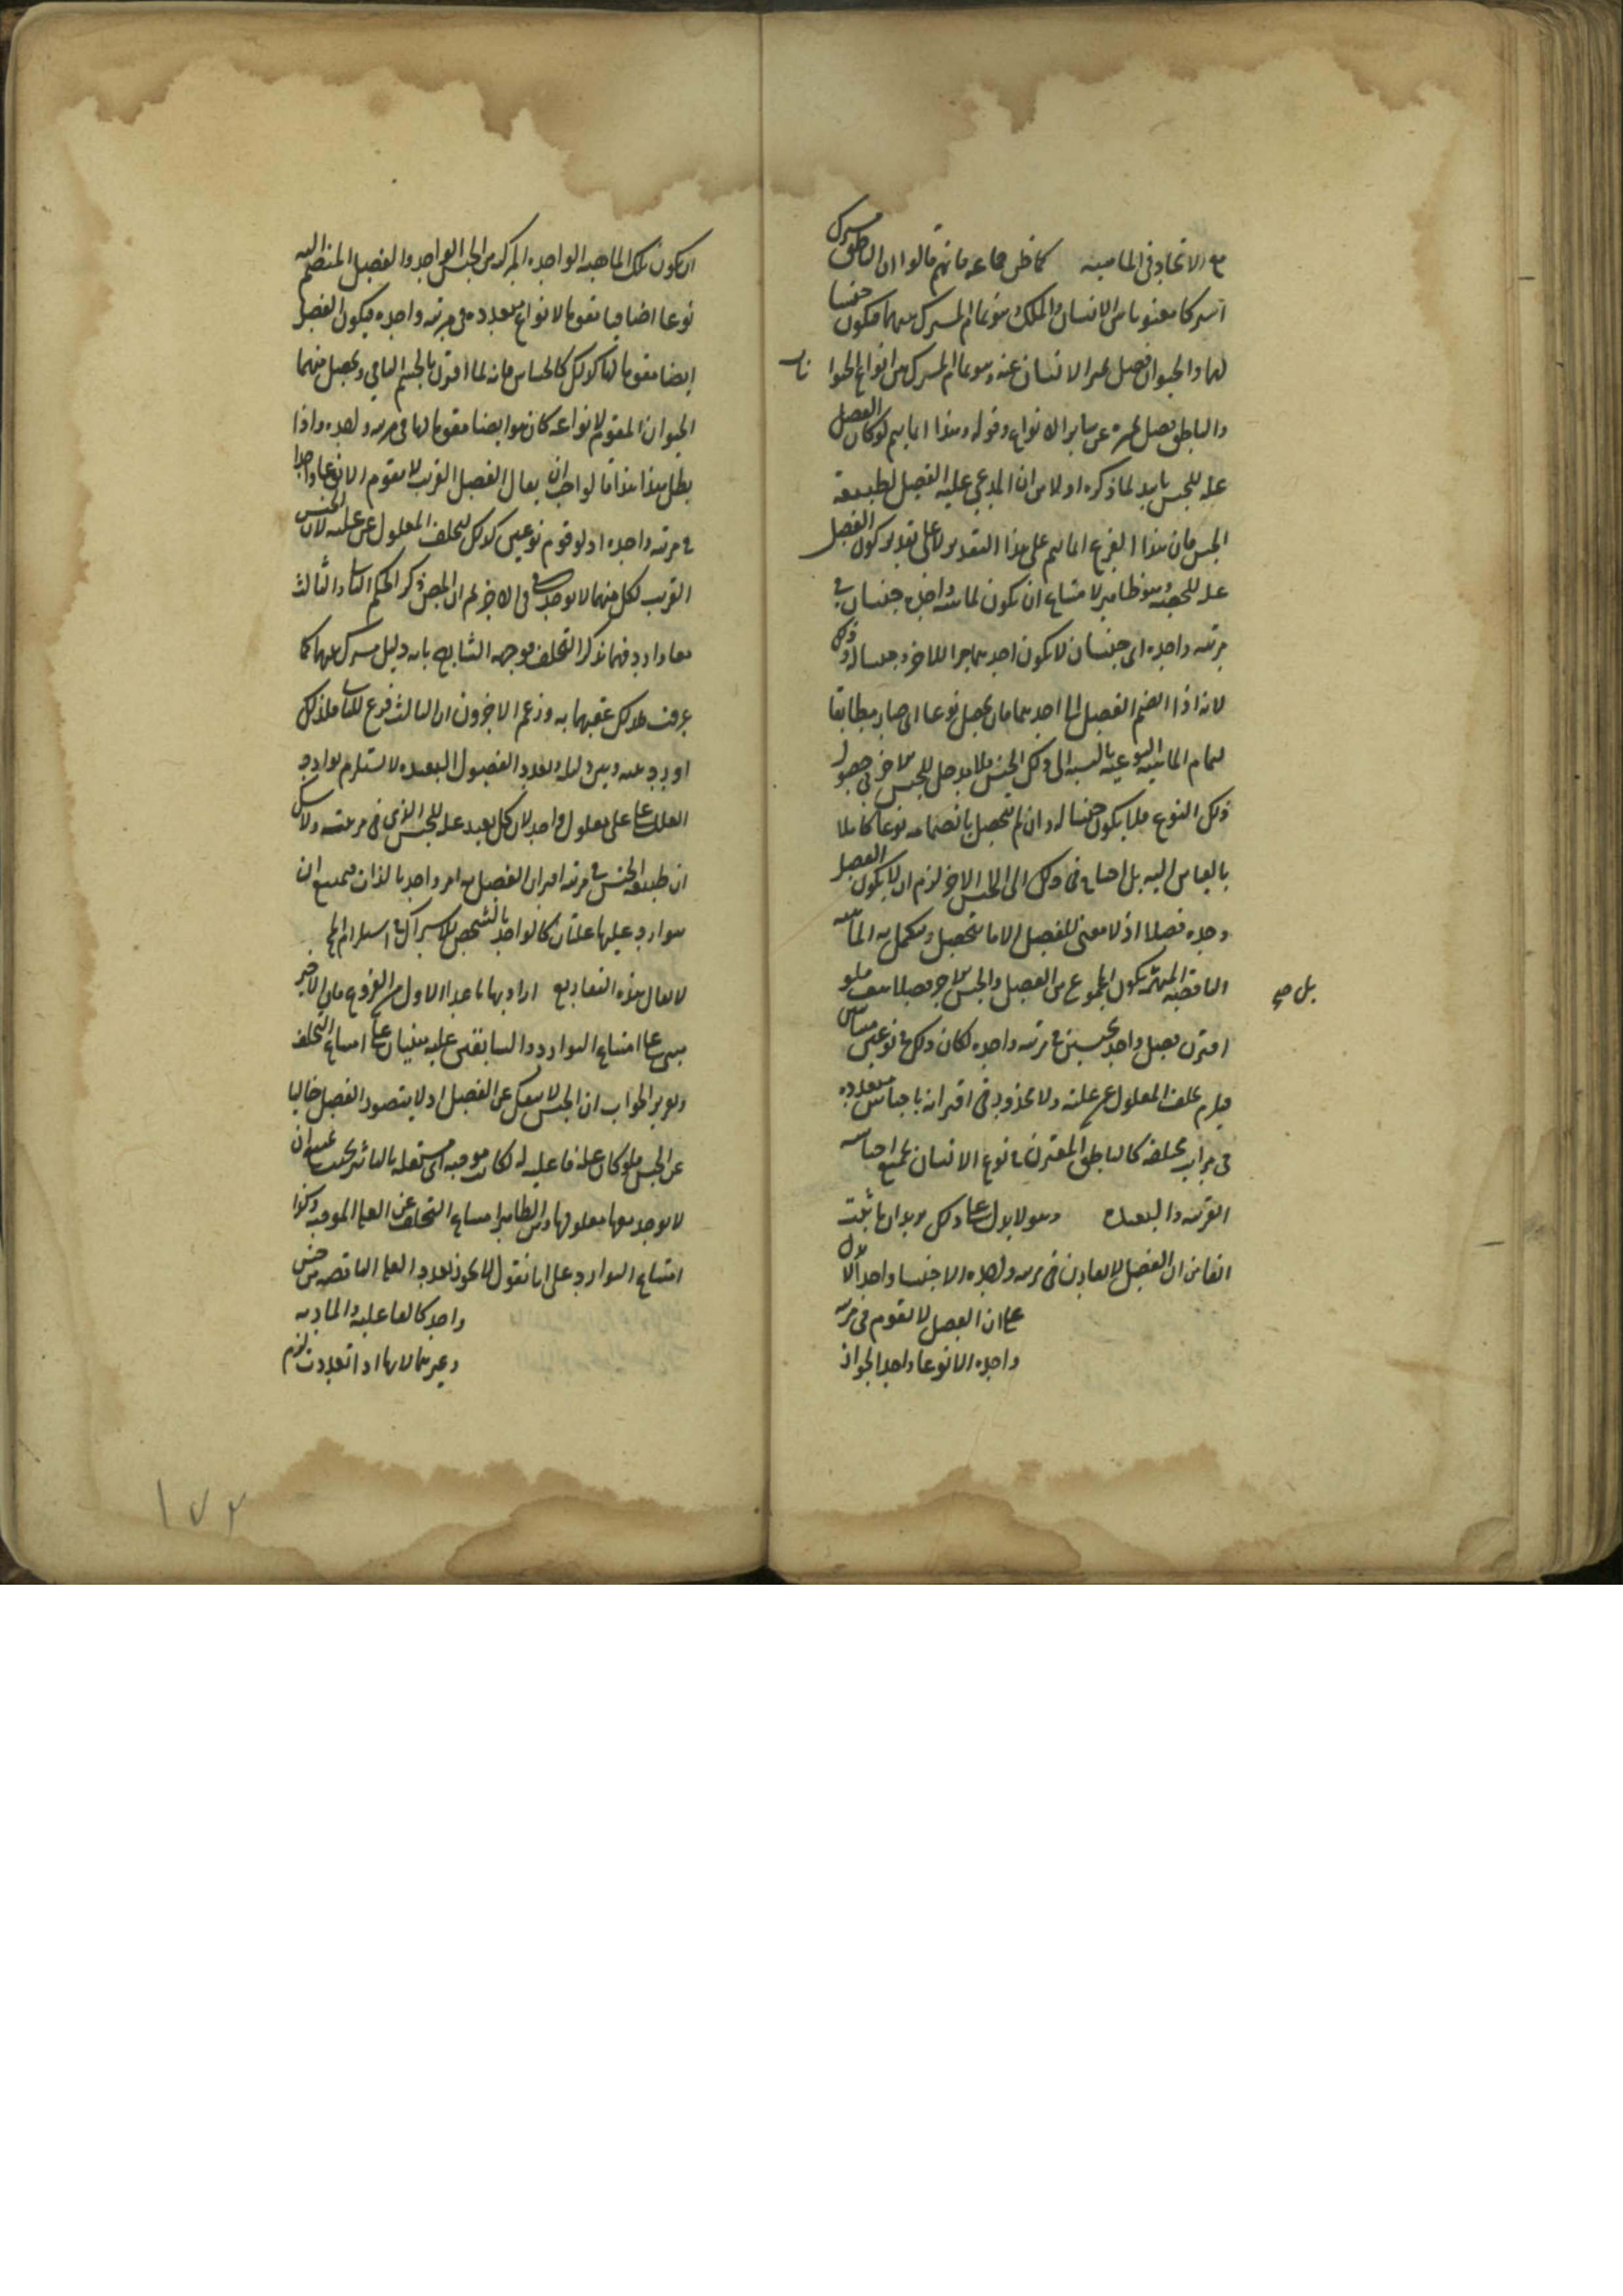 مع الاتحاد فى الماهية كما ظن جماعة فانهم قالوا ان الناطق مشترك
اشتراكا معنويا بين الانسان والملك وهو تمام المشترك بينهما فيكون جنسا
لهما والحيوان فصل يميز الانسان عنه وهو تمام المشترك بين انواع الحيوانات
والناطق فصل يميزه عن سائر الانواع وقوله وهذا انما يتم لو كان الفصل
علة للجنس تاييد لما ذكره اولا من ان المدعى علية الفصل لطبيعة
الجنس فان هذا الفرع انما يتم على هذا التقدير لا على تقدير كون الفصل
علة للحصة وهو ظاهر لامتناع ان يكون لماهية واحدة جنسان فى
مرتبة واحدة اى جنسان لا يكون احدهما جزءا للاخر وجنسا له وذلك
لانه اذا انضم الفصل الى احدهما فان يحصل نوعا اى صار مطابقا
لتمام الماهية النوعية بالنسبة الى ذلك الجنس فلا مدخل للجنس الاخر فى حصول
ذلك النوع فلا يكون جنسا له وان لم يتحصل بانضمامه نوعا كاملا
بالقياس اليه بل احتاج فى ذلك الى الجنس الاخر لزم ان لا يكون الفصل
وحده فصلا اذ لا معنى للفصل الا ما يتحصل ويتكمل به الماهية
الناقصة المبهمة بل يكون المجموع من الفصل والجنس الاخر فصلا فلو
بل صح
اقترن فصل واحد بجنسين فى مرتبة واحدة لكان ذلك فى نوعين متباينين
فيلزم تخلف المعلول عن علته ولا محذور فى اقترانه باجناس متعددة
فى مراتب مختلفة كالناطق المقترن فى نوع الانسان بجميع اجناسه
القريبة والبعيدة وهو لا يدل على ذلك يريد ان ما ثبت
انفا من ان الفصل لا يقارن فى مرتبة واحدة الا جنسا واحدا لا يدل
على ان الفصل لا يقوم فى مرتبة
واحدة الا نوعا واحدا لجواز
ان يكون تلك الماهية الواحدة المركبة من الجنس الواحد والفصل المنضم اليه
نوعا اضافيا مقوما لانواع متعددة فى مرتبة واحدة فيكون الفصل
ايضا مقوما لها كذلك كالحساس فانه لما اقترن بالجسم النامى وحصل منهما
الحيوان المقوم لانواعه كان هو ايضا مقوما لها فى مرتبة واحدة واذا
بطل هذا هذا قالوا يجب ان يقال الفصل القريب لا يقوم الا نوعا واحدا
فى مرتبة واحدة اذ لو قوم نوعين كذلك لتخلف المعلول عن علته لان الجنس
القريب لكل منهما لا يوجد فى الاخر ثم ان المصنف ذكر الحكم الثانى والثالث
معا واورد فيهما ذكر التخلف فوجهه الشارح بانه دليل مشترك بينهما كما
عرفت فلذلك عقبهما به وزعم الاخرون ان الثالث فرع للثانى فلذلك
اورد بينه وبين دليله وتعدد الفصول البعيدة لا يستلزم توارد
العلل على معلول واحد لان كل بعيد علة للجنس الذى فى مرتبته ولا شك
ان طبيعة الجنس فى مرتبة اقتران الفصل به امر واحد بالذات فيمتنع ان
يتوارد عليها علتان كالواحد بالشخص للاشتراك فى استلزام المحال
لا يقال هذه التفاريع اراد بها ما عدا الاول من الفروع فان الاخير
مبنى على امتناع التوارد والسابقين عليه مبنيان على امتناع التخلف
وتقرير الجواب ان الجنس لا ينفك عن الفصل اذ لا يتصور الفصل خاليا
عن الجنس فلو كان علة فاعلية له لكان موجبة اى مستقلة بالتاثير بحيث يمتنع ان
لا يوجد معها معلولها ومن الظاهر امتناع التخلف عن العلة الموجبة وكذا
امتناع التوارد على انا نقول لا يجوز تعدد العلة الناقصة من جنس
واحد كالفاعلية والمادية
وغيرهما لانها اذا تعددت لزم
١٧٢